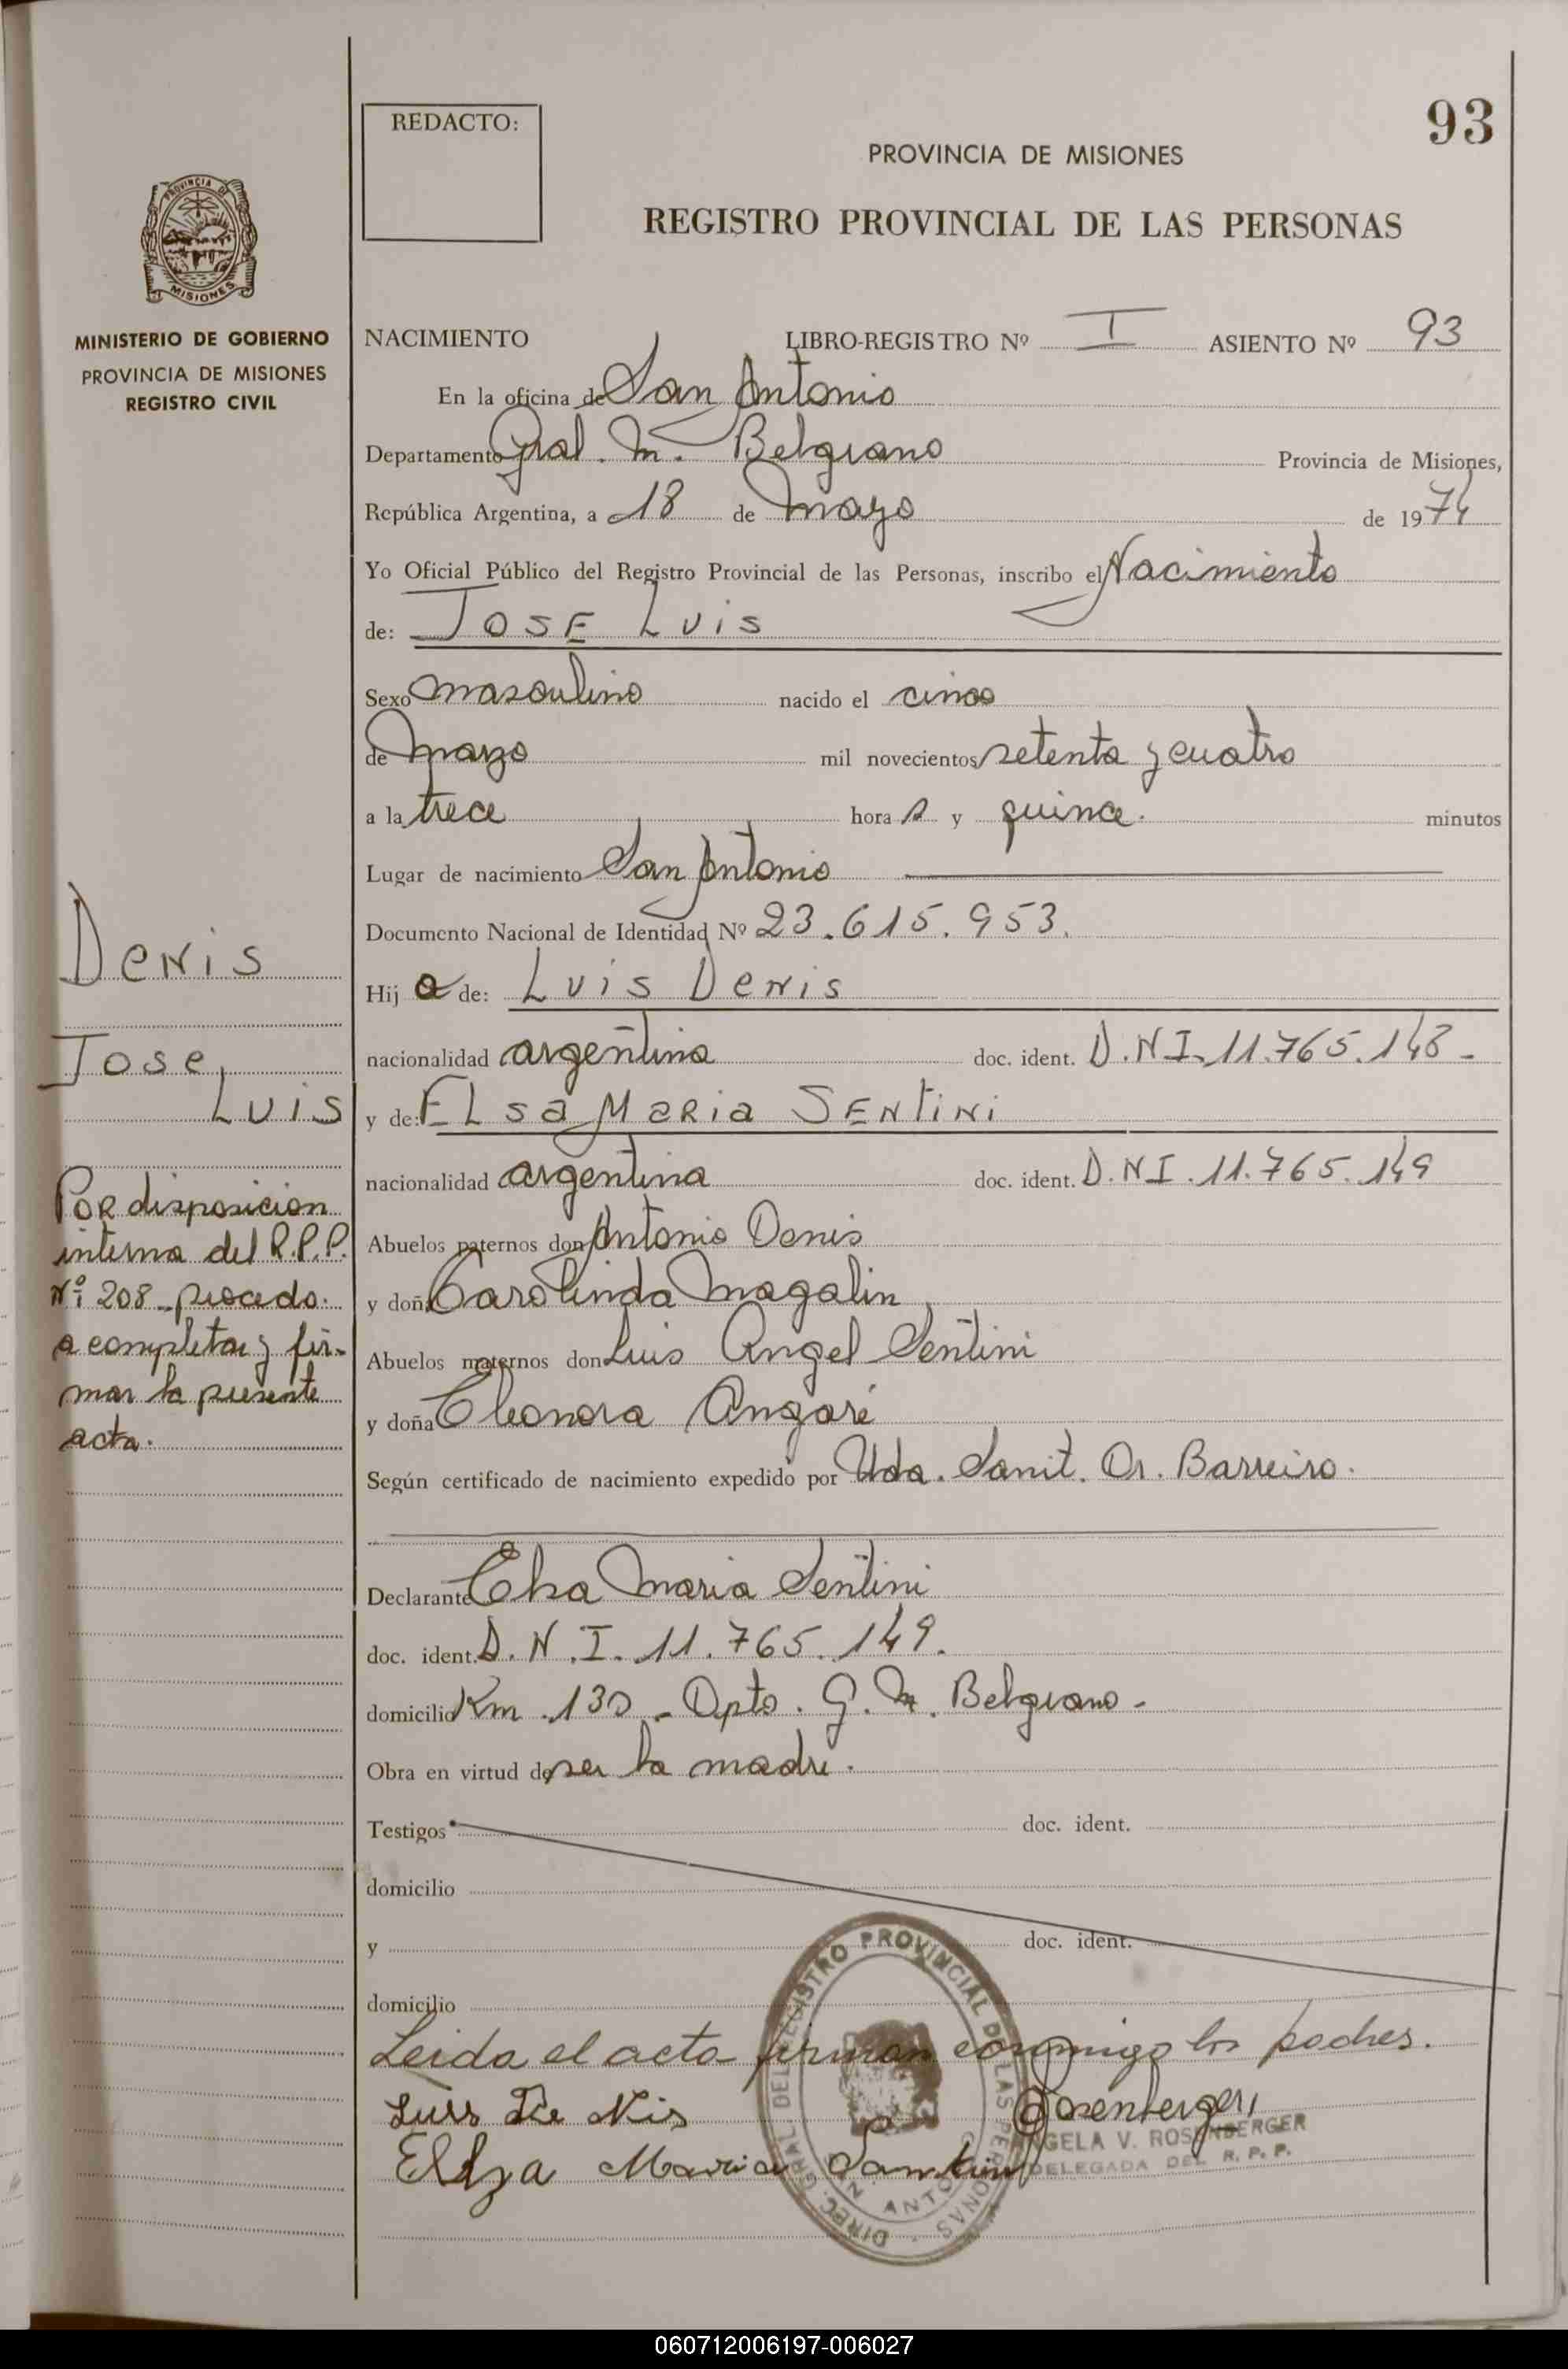 93
REDACTO:
PROVINCIA DE MISIONES
REGISTRO PROVINCIAL DE LAS PERSONAS
PROVINCIA DE
MISIONES
MINISTERIO DE GOBIERNO
PROVINCIA DE MISIONES
REGISTRO CIVIL
NACIMIENTO LIBRO-REGISTRO Nº I ASIENTO Nº 93
En la oficina de San Antonio
Departamento Gral. M. Belgrano Provincia de Misiones,
República Argentina, a 18 de mayo de 1974
Yo Oficial Público del Registro Provincial de las Personas, inscribo el Nacimiento
de: JOSE LUIS
Sexo masculino nacido el cinco
de marzo mil novecientos setenta y cuatro
a la trece hora s y quince. minutos
Lugar de nacimiento San Antonio
Documento Nacional de Identidad Nº 23.615.953.
Hij o de: Luis Denis
nacionalidad argentina doc. ident. D.N.I. 11.765.148-
y de: ELsa Maria SENtiNi
nacionalidad argentina doc. ident. D.N.I. 11.765.149
Abuelos paternos don Antonio Denis
y doña Carolinda Magalin
Abuelos maternos don Luis Angel Sentini
y doña Eleonora Angaré
Según certificado de nacimiento expedido por Uda. Sanit. Dr. Barreiro.
Declarante Elsa Maria Sentini
doc. ident. D.N.I. 11.765.149.
domicilio Km. 130 - Dpto. G. M. Belgrano-
Obra en virtud de ser la madre.
Testigos doc. ident.
domicilio
y doc. ident.
domicilio
Leida el acta firman conmigo los padres.
Luis De Nis
Rosenberger
Elsa Maria Santini
ANGELA V. ROSENBERGER
DELEGADA DEL R. P. P.
DIREC. GRAL. DEL REGISTRO PROVINCIAL DE LAS PERSONAS
Denis
Jose
Luis
Por disposicion
interna del R.P.P.
Nº 208 procedo
a completar y fir-
mar la presente
acta.
060712006197-006027